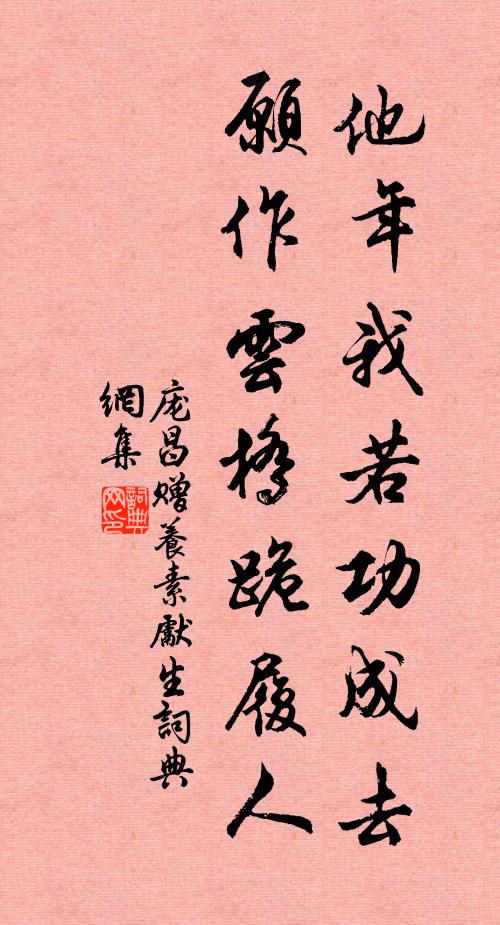 他年我若功成去
願作雲橋跪履人
庞昌赠養素獻生詞典
網集
詞典
网印